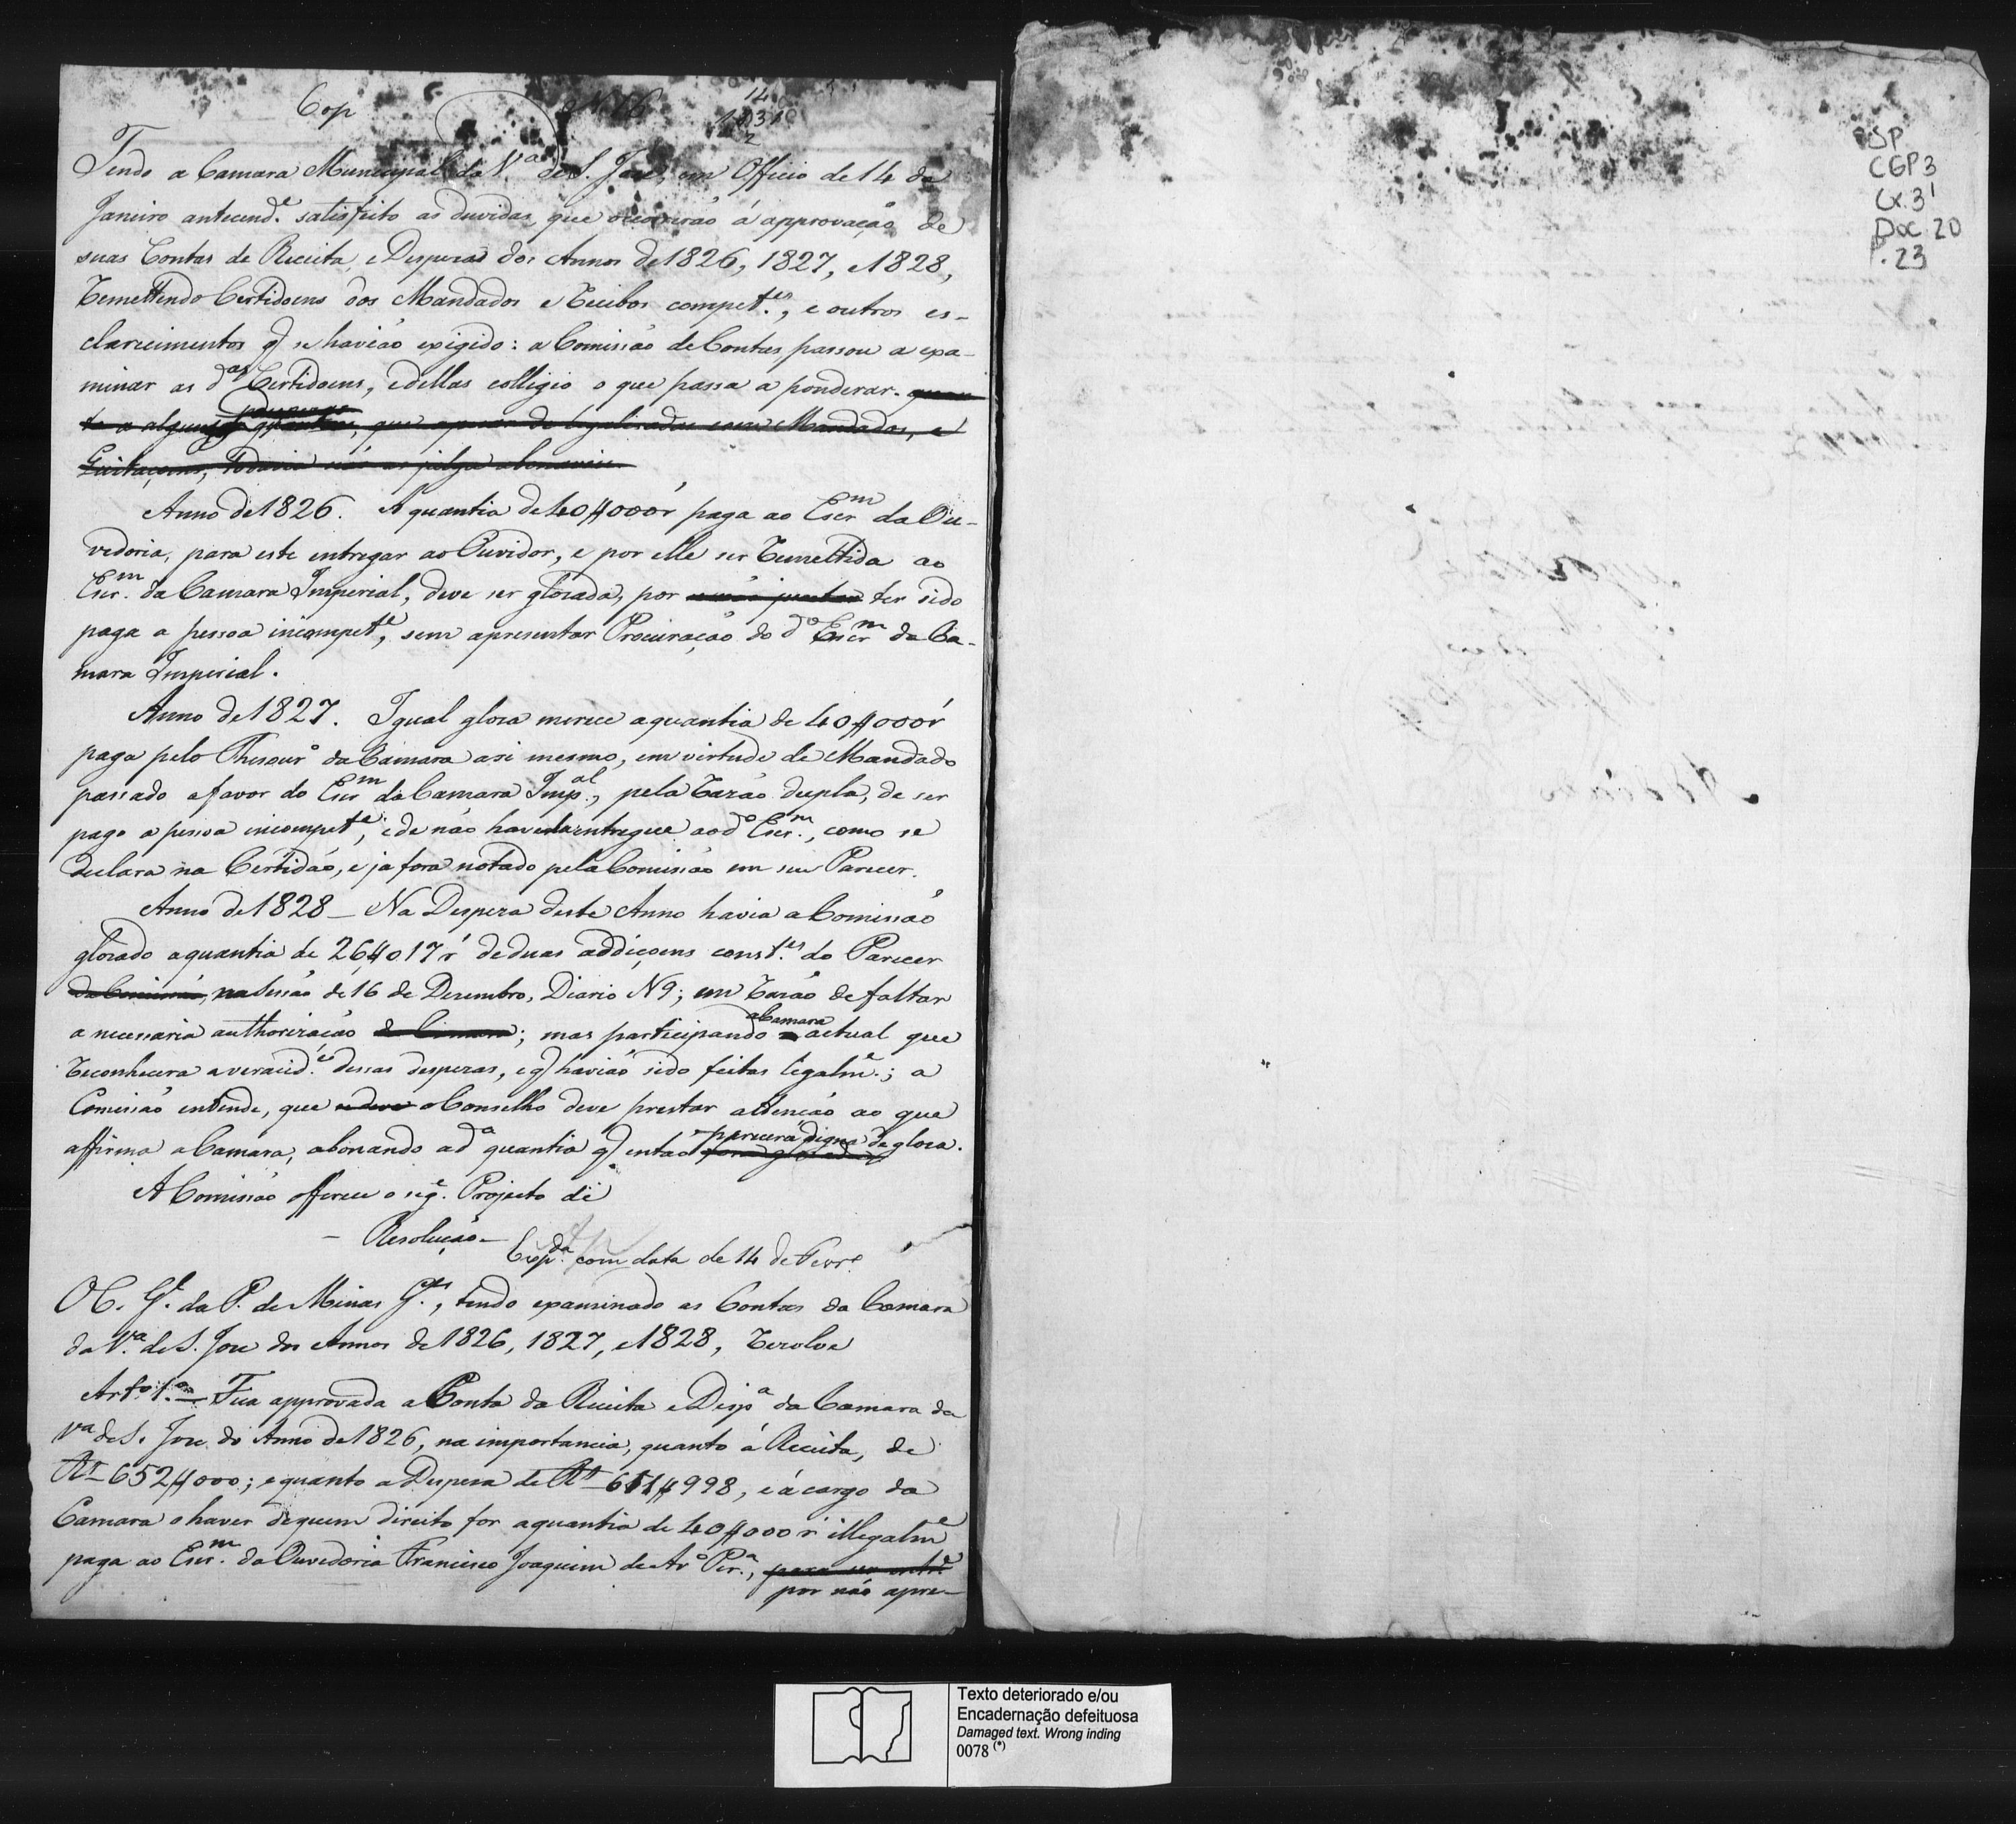 Cop
Tendo a Camara Municipal da V.ª de S. Jose, em Officio de 14 de
Janeiro antecend.e satisfeito as duvidas, que occorrerão á approvação de
suas Contas de Receita, e Despeza dos Annos de 1826, 1827, e 1828,
remettendo Certidoens dos Mandados e Recibos compet.es, e outros es-
clarecimentos q̃ se havião exigido: a Comissão de Contas passou a exa-
minar as d.as Certidoens, e dellas colligio o que passa a ponderar. quan
to a algumas quantias, que apezar de legalizadas com Mandados, e
Quitaçoens, todavia não as julga abonaveis
Anno de 1826. A quantia de 40$000 r̃ paga ao Escr.m da Ou-
vedoria, para este entregar ao Ouvidor, e por elle ser remettida ao
Escr.m da Camara Imperial, deve ser glozada, por ter sido
paga a pessoa incompet.e, sem apresentar Procuração do d.o Escr.m da Ca-
mara Imperial.
Anno de 1827. Igual gloza merece a quantia de 40$000 r̃
paga pelo Thesour.o da Camara a si mesmo, em virtude de Mandado
passado a favor do Escr.m da Camara Imp.al, pela razão dupla, de ser
pago a pessoa incompet.e, e de não havela entregue ao d.o Escr.m, como se
declara na Certidão, e ja fora notado pela Comissão em seu Parecer.
Anno de 1828 _ Na Despeza deste Anno havia a Comissão
glozado a quantia de 26$017 r̃ de duas addiçoens const.es do Parecer
da Comissão, na Sessão de 16 de Dezembro, Diario N 9; em razão de faltar
a necessaria authorização da Camara; mas participando a Camara actual que
reconhecera a veracid.e dessas despezas, e q̃ havião sido feitas legalm.e; a
Comissão entende, que se deve o Conselho deve prestar attenção ao que
affirma a Camara, abonando a d.a quantia q̃ então fora glozada parecera digna de gloza.
A Comissão offerece o seg.e Projecto de
– Resolução –
Exp.da com data de 14 de Fevr.o
O C. G.l da P. de Minas G.es, tendo examinado as Contas da Camara
da V.ª de S. Jose dos Annos de 1826, 1827, e 1828, rezolve
Art.o 1.o – Fica approvada a Conta da Receita e Desp.a da Camara da
V.ª de S. Jose do Anno de 1826, na importancia, quanto á Receita, de
R.s 652$000; e quanto a Despeza de R.s 651$998, e á cargo da
Camara o haver de quem direito for a quantia de 40$000 r̃ illegalm.e
paga ao Escr.m da Ouvedoria Francisco Joaquim de Ar.o Per.a, para ser entr.e
por não apre-
SP
CGP 3
Cx. 31
Doc 20
P. 23
Texto deteriorado e/ou
Encadernação defeituosa
Damaged text. Wrong inding
0078 (*)